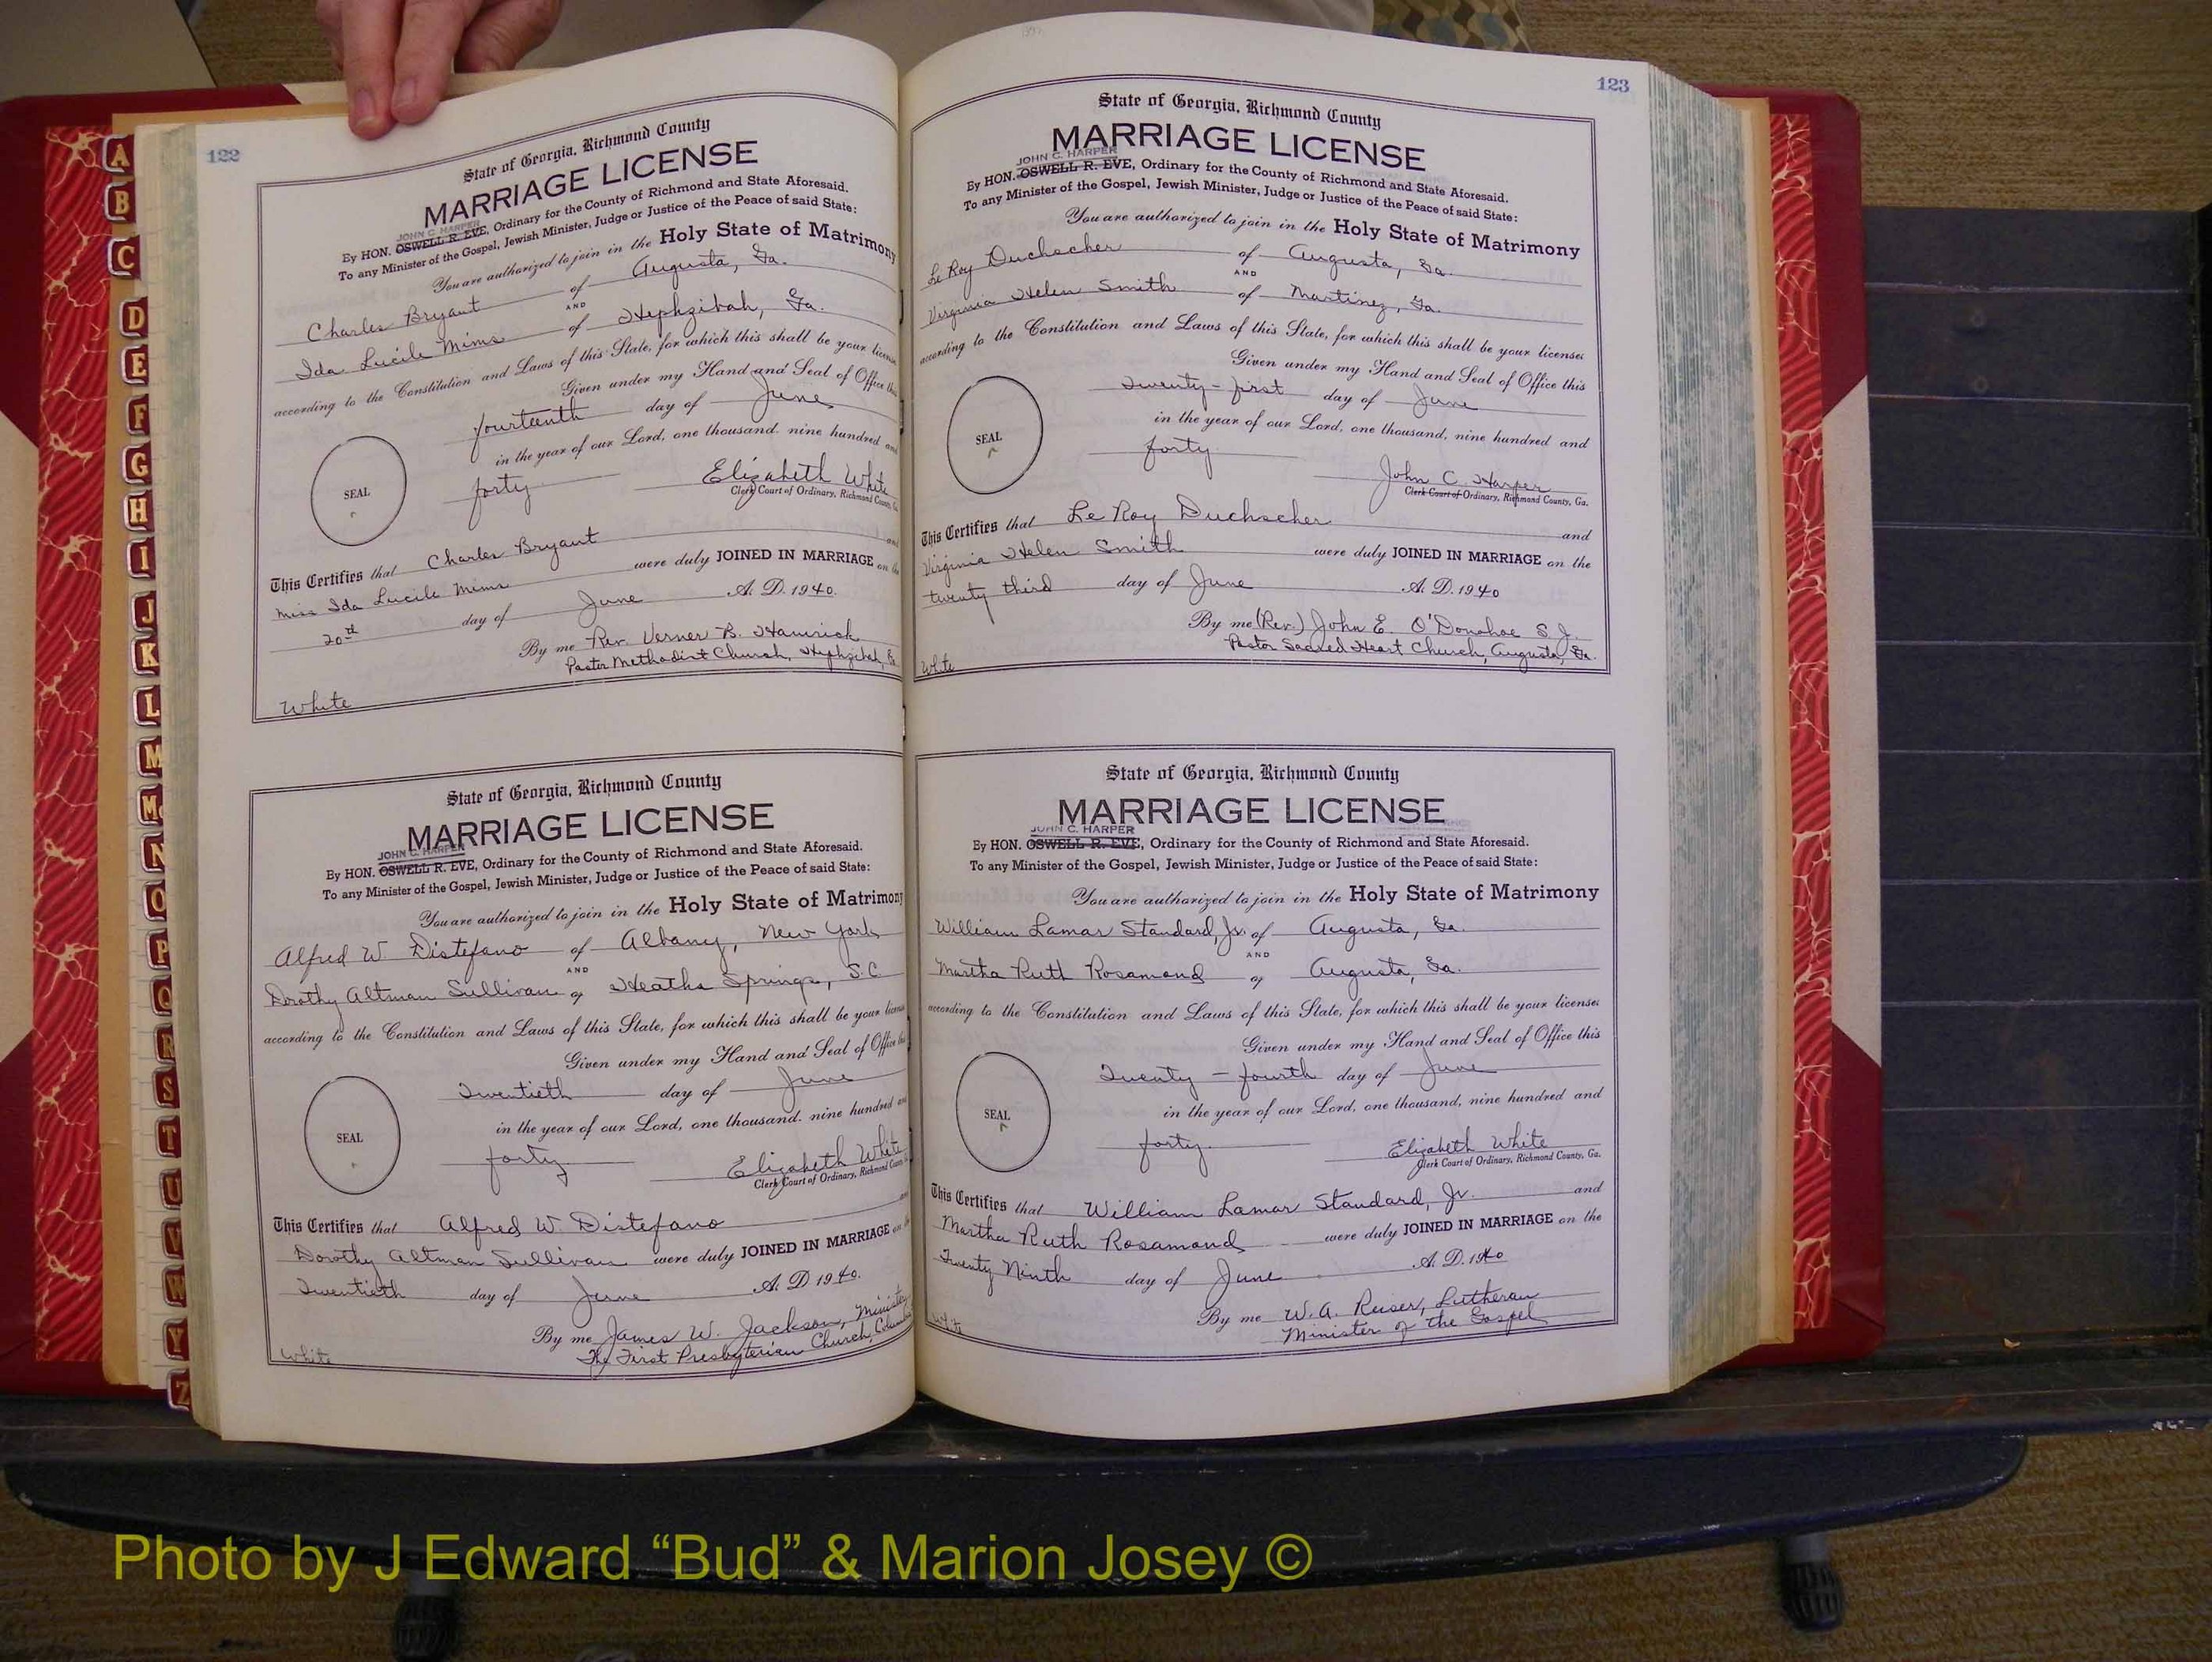 122
State of Georgia, Richmond County
MARRIAGE LICENSE
JOHN C. HARPER
By HON. OSWELL R. EVE, Ordinary for the County of Richmond and State Aforesaid.
To any Minister of the Gospel, Jewish Minister, Judge or Justice of the Peace of said State:
You are authorized to join in the Holy State of Matrimony
Charles Bryant of Augusta, Ga.
AND
Ida Lucile Mims of Hephzibah, Ga.
according to the Constitution and Laws of this State, for which this shall be your license
Given under my Hand and Seal of Office this
fourteenth day of June
in the year of our Lord, one thousand, nine hundred and
SEAL
forty
Elizabeth White
Clerk Court of Ordinary, Richmond County, G
This Certifies that Charles Bryant and
Miss Ida Lucile Mims were duly JOINED IN MARRIAGE on the
20th day of June A. D. 1940.
By me Rev. Verner B. Hamrick
Pastor Methodist Church, Hephzibah, Ga
White
State of Georgia, Richmond County
MARRIAGE LICENSE
JOHN C. HARPER
By HON. OSWELL R. EVE, Ordinary for the County of Richmond and State Aforesaid.
To any Minister of the Gospel, Jewish Minister, Judge or Justice of the Peace of said State:
You are authorized to join in the Holy State of Matrimony
Alfred W. Distefano of Albany, New York
AND
Dorothy Altman Sullivan of Heaths Springs, S.C.
according to the Constitution and Laws of this State, for which this shall be your license
Given under my Hand and Seal of Office this
Twentieth day of June
in the year of our Lord, one thousand, nine hundred an
SEAL
forty
Elizabeth White
Clerk Court of Ordinary, Richmond County
This Certifies that Alfred W. Distefano and
Dorothy Altman Sullivan were duly JOINED IN MARRIAGE on
Twentieth day of June A. D. 1940.
By me James W. Jackson, Minister
The First Presbyterian Church, Columbia
White
123
State of Georgia, Richmond County
MARRIAGE LICENSE
JOHN C. HARPER
By HON. OSWELL R. EVE, Ordinary for the County of Richmond and State Aforesaid.
To any Minister of the Gospel, Jewish Minister, Judge or Justice of the Peace of said State:
You are authorized to join in the Holy State of Matrimony
Le Roy Duchscher of Augusta, Ga.
AND
Virginia Helen Smith of Martinez, Ga.
according to the Constitution and Laws of this State, for which this shall be your license:
Given under my Hand and Seal of Office this
Twenty-first day of June
in the year of our Lord, one thousand, nine hundred and
SEAL
forty
John C. Harper
Clerk Court of Ordinary, Richmond County, Ga.
This Certifies that Le Roy Duchscher and
Virginia Helen Smith were duly JOINED IN MARRIAGE on the
twenty third day of June A. D. 1940
By me (Rev.) John E. O'Donohoe S.J.
Pastor Sacred Heart Church, Augusta, Ga.
White
State of Georgia, Richmond County
MARRIAGE LICENSE
JOHN C. HARPER
By HON. OSWELL R. EVE, Ordinary for the County of Richmond and State Aforesaid.
To any Minister of the Gospel, Jewish Minister, Judge or Justice of the Peace of said State:
You are authorized to join in the Holy State of Matrimony
William Lamar Standard, Jr. of Augusta, Ga.
AND
Martha Ruth Rosamond of Augusta, Ga.
according to the Constitution and Laws of this State, for which this shall be your license:
Given under my Hand and Seal of Office this
Twenty-fourth day of June
in the year of our Lord, one thousand, nine hundred and
SEAL
forty
Elizabeth White
Clerk Court of Ordinary, Richmond County, Ga.
This Certifies that William Lamar Standard, Jr. and
Martha Ruth Rosamond were duly JOINED IN MARRIAGE on the
Twenty Ninth day of June A. D. 1940
By me W. A. Reiser, Lutheran
Minister of the Gospel
White
A
B
C
D
E
F
G
H
I
J
K
L
M
Mc
N
O
P
Q
R
S
T
U
V
W
Y
Z
Photo by J Edward “Bud” & Marion Josey ©